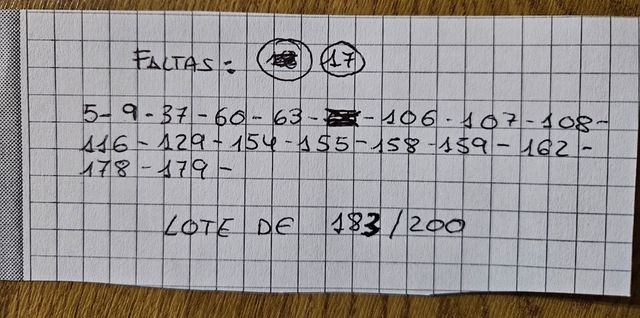 FALTAS: 17
5-9-37-60-63- -106-107-108-
116-129-154-155-158-159-162-
178-179-
LOTE DE 183/200